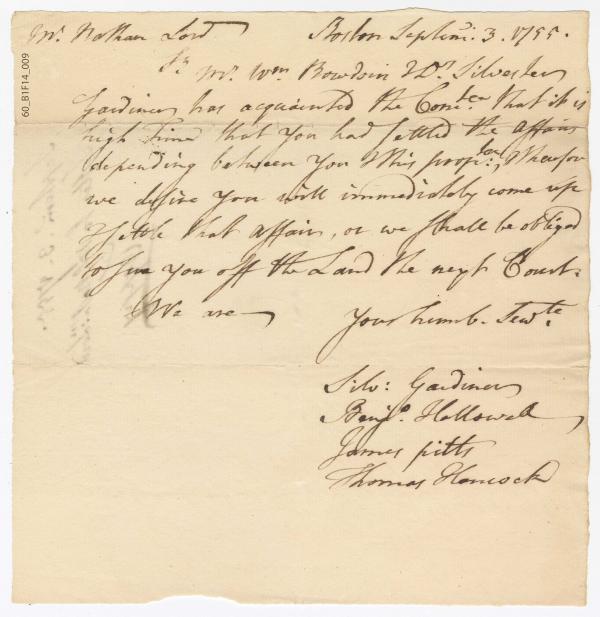 60_B1F14_009
Mr. Nathan Lord Boston Septemr: 3. 1755.
Sr Mr. Wm Bowdoin & Dr Silvester
Gardiner has acquainted the Comtee. that it is
high time that you had settled the affairs
depending between you & this proprty:, Therefore
we desire you will immediately come up
& settle that affair, or we shall be obliged
to sue you off the Land the next Court.
We are
Your humb. Servts.
Silv: Gardiner
Benja. Hallowell
James pitts
Thomas Hancock